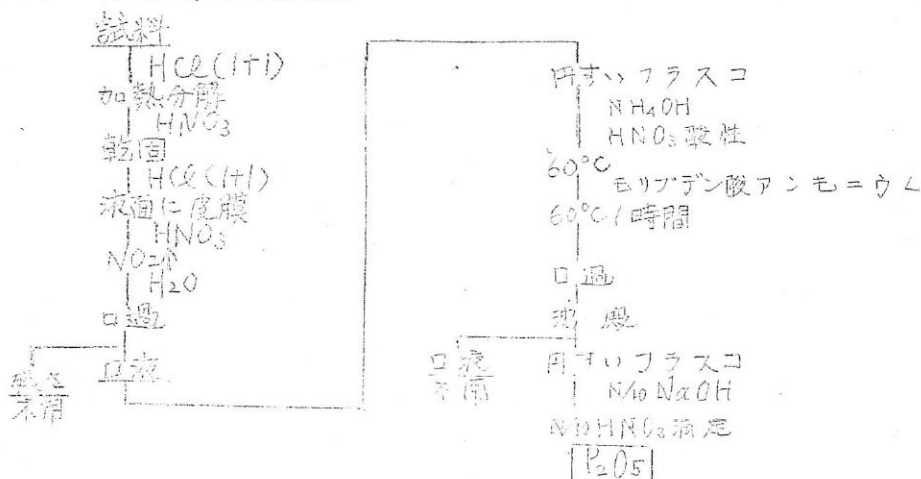 試料
HCl(1+1)
加熱分解
HNO3
乾固
HCl(1+1)
液面に皮膜
HNO3
NO2↑
H2O
ロ過
ロ液
不用
円すいフラスコ
NH4OH
HNO3酸性
60°C
モリブデン酸アンモニウム
60°C 1時間
ロ過
沈澱
ロ液
不用
円すいフラスコ
N/10 NaOH
N/10 HNO3滴定
P2O5